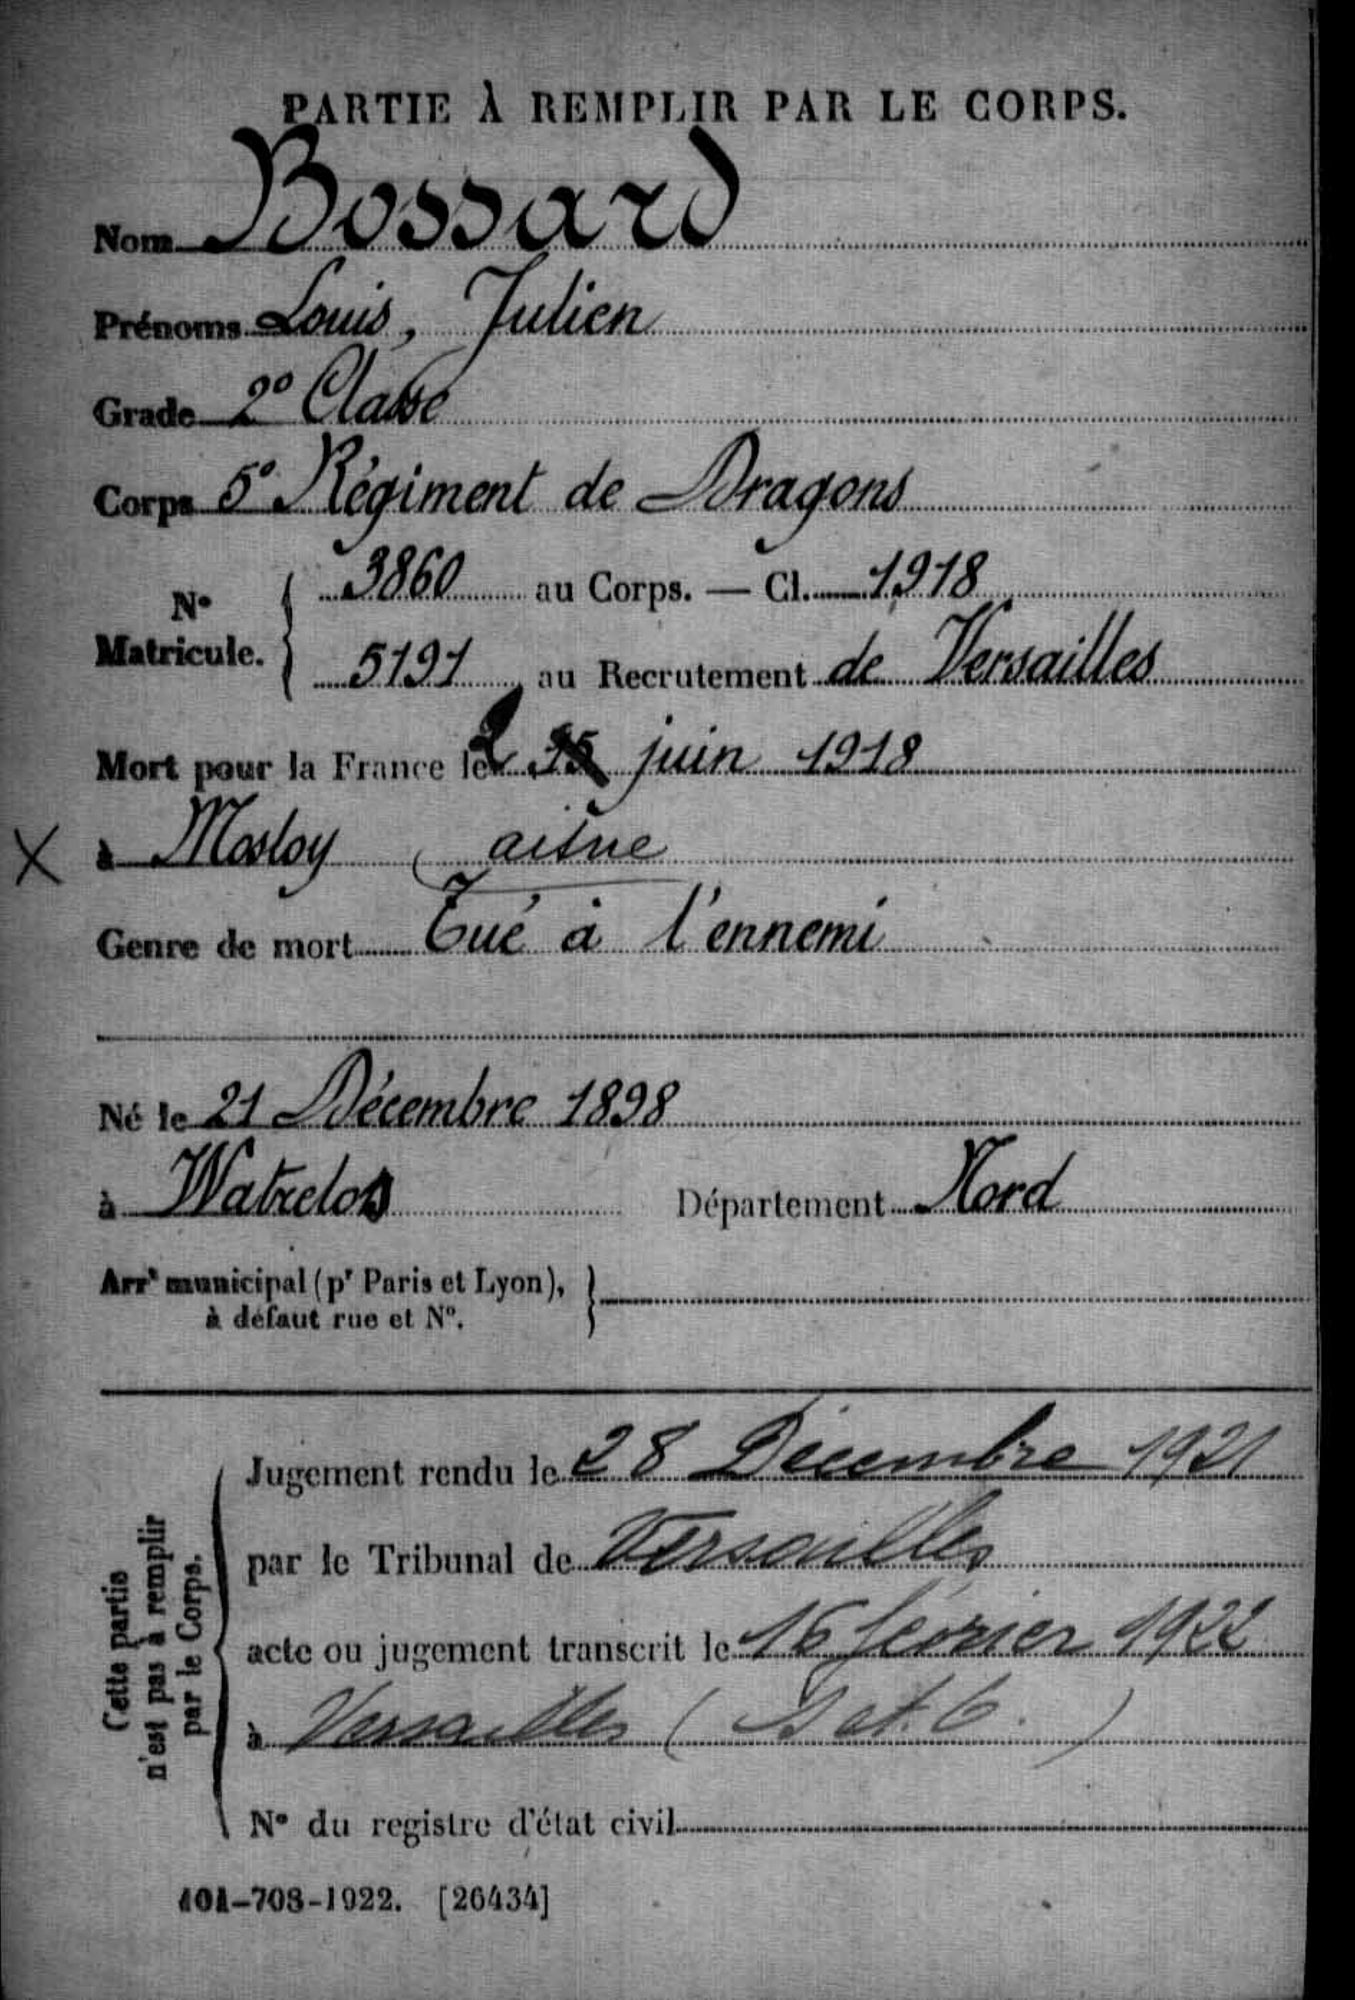 PARTIE À REMPLIR PAR LE CORPS.
Nom Bossard
Prénoms Louis, Julien
Grade 2e Classe
Corps 5e Régiment de Dragons
No Matricule. { 3860 au Corps. — Cl. 1918
5191 au Recrutement de Versailles
Mort pour la France le 2 juin 1918
X à Mosloy ( aisne
Genre de mort Tué à l'ennemi
Né le 21 Décembre 1898
à Watrelos Département Nord
Arrt municipal (pr Paris et Lyon), }
à défaut rue et No.
Cette partie n'est pas à remplir par le Corps. {
Jugement rendu le 28 Décembre 1921
par le Tribunal de Versailles
acte ou jugement transcrit le 16 février 1922
à Versailles ( )
No du registre d'état civil
101-708-1922. [26434]